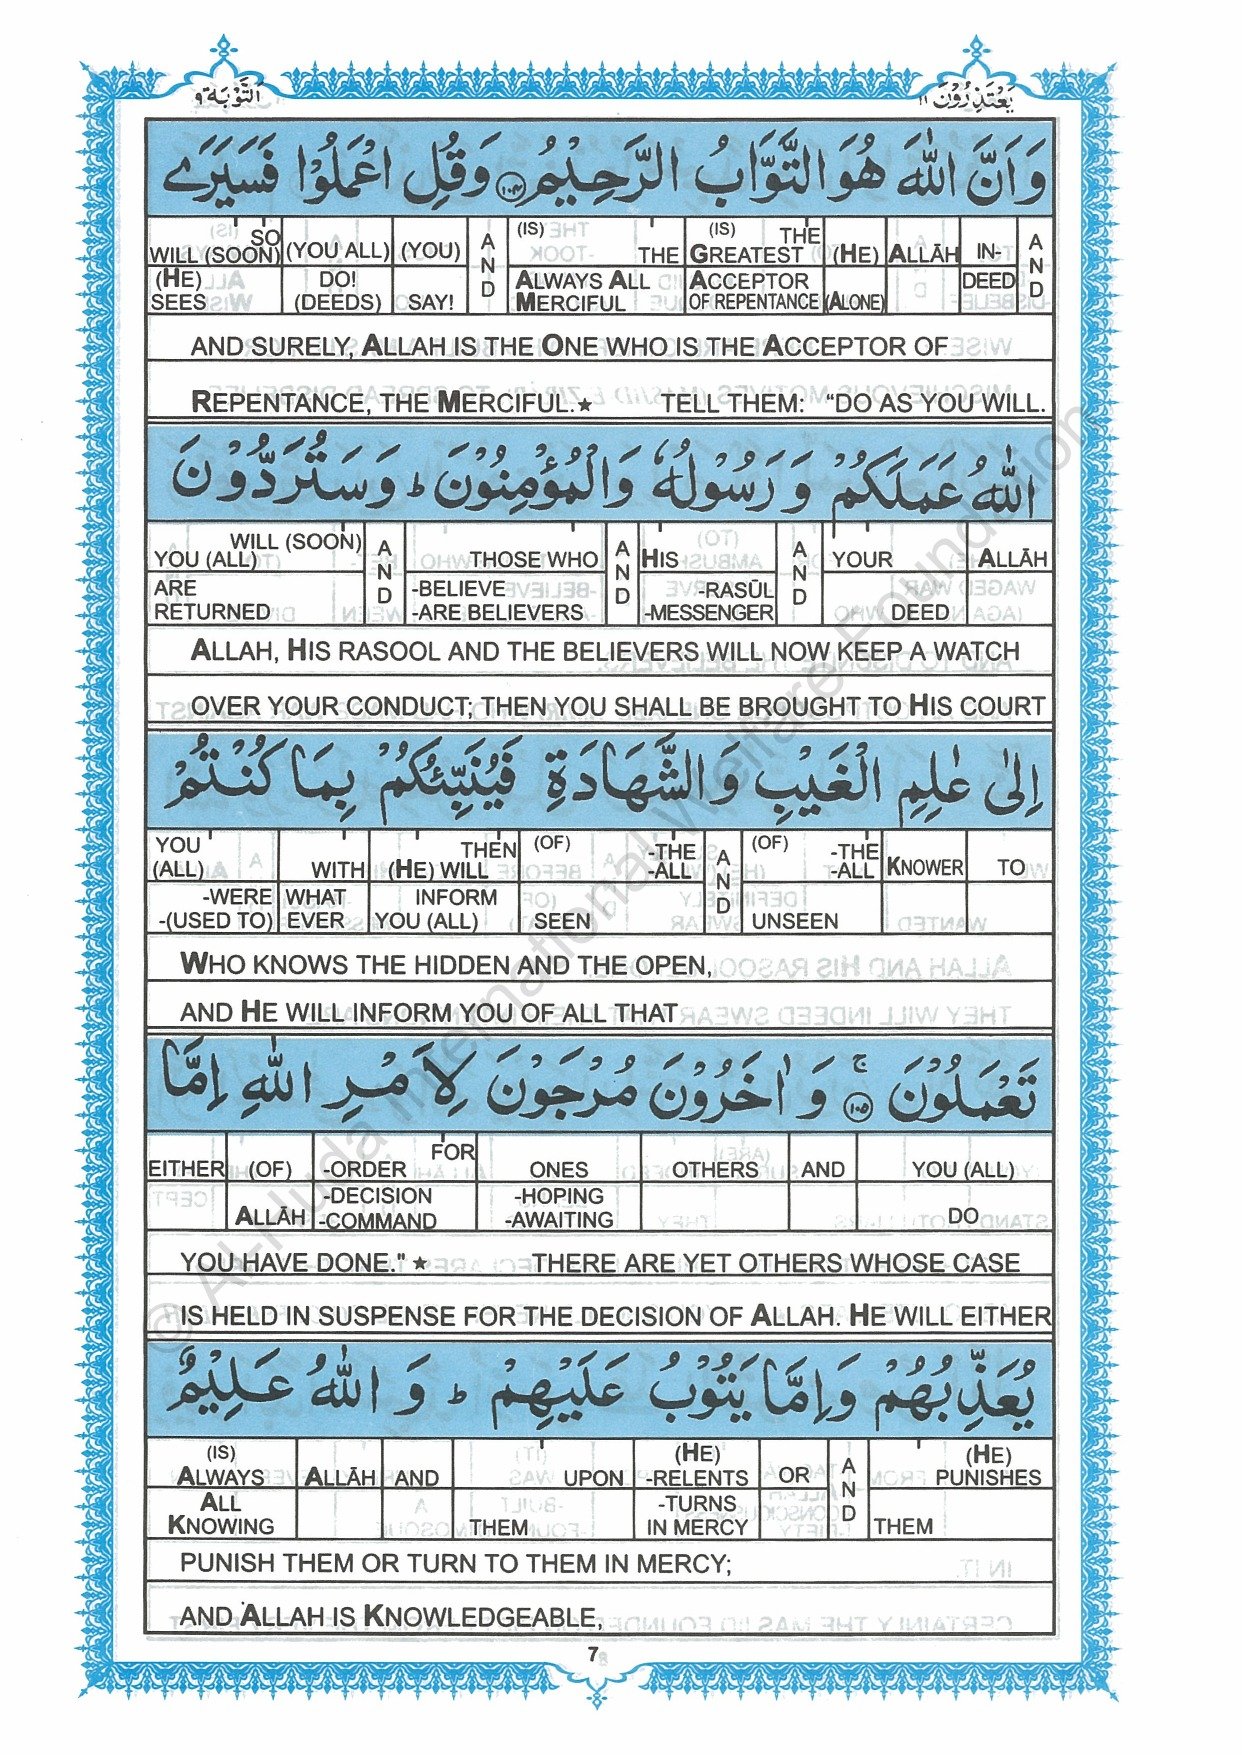 التَّوْبَة ٩
يَعْتَذِرُوْنَ ١١
وَاَنَّ اللّٰهَ هُوَ التَّوَّابُ الرَّحِيْمُ ١٠٤ وَقُلِ اعْمَلُوْا فَسَيَرَے
SO WILL (SOON) (YOU ALL) (YOU) AND (IS) THE (IS) THE GREATEST (HE) ALLĀH IN- AND
(HE) SEES DO! (DEEDS) SAY! ALWAYS ALL MERCIFUL ACCEPTOR OF REPENTANCE (ALONE) DEED
AND SURELY, ALLAH IS THE ONE WHO IS THE ACCEPTOR OF
REPENTANCE, THE MERCIFUL.★ TELL THEM: “DO AS YOU WILL.
اللّٰهُ عَمَلَكُمْ وَ رَسُوْلُهٗ وَالْمُؤْمِنُوْنَ ؕ وَ سَتُرَدُّوْنَ
WILL (SOON) YOU (ALL) AND THOSE WHO AND HIS AND YOUR ALLĀH
ARE RETURNED -BELIEVE -ARE BELIEVERS -RASŪL -MESSENGER DEED
ALLAH, HIS RASOOL AND THE BELIEVERS WILL NOW KEEP A WATCH
OVER YOUR CONDUCT; THEN YOU SHALL BE BROUGHT TO HIS COURT
اِلٰى عٰلِمِ الْغَيْبِ وَالشَّهَادَةِ فَيُنَبِّئُكُمْ بِمَا كُنْتُمْ
YOU (ALL) WITH THEN (HE) WILL (OF) -THE -ALL AND (OF) -THE -ALL KNOWER TO
-WERE -(USED TO) WHAT EVER INFORM YOU (ALL) SEEN UNSEEN
WHO KNOWS THE HIDDEN AND THE OPEN,
AND HE WILL INFORM YOU OF ALL THAT
تَعْمَلُوْنَ ۚ ١٠٥ وَ اٰخَرُوْنَ مُرْجَوْنَ لِاَمْرِ اللّٰهِ اِمَّا
EITHER (OF) FOR -ORDER ONES OTHERS AND YOU (ALL)
ALLĀH -DECISION -COMMAND -HOPING -AWAITING DO
YOU HAVE DONE." ★ THERE ARE YET OTHERS WHOSE CASE
IS HELD IN SUSPENSE FOR THE DECISION OF ALLAH. HE WILL EITHER
يُعَذِّبُهُمْ وَاِمَّا يَتُوْبُ عَلَيْهِمْ ؕ وَ اللّٰهُ عَلِيْمٌ
(IS) ALWAYS ALLĀH AND UPON (HE) -RELENTS OR AND (HE) PUNISHES
ALL KNOWING THEM -TURNS IN MERCY THEM
PUNISH THEM OR TURN TO THEM IN MERCY;
AND ALLAH IS KNOWLEDGEABLE,
7
© Al-Huda International Welfare Foundation